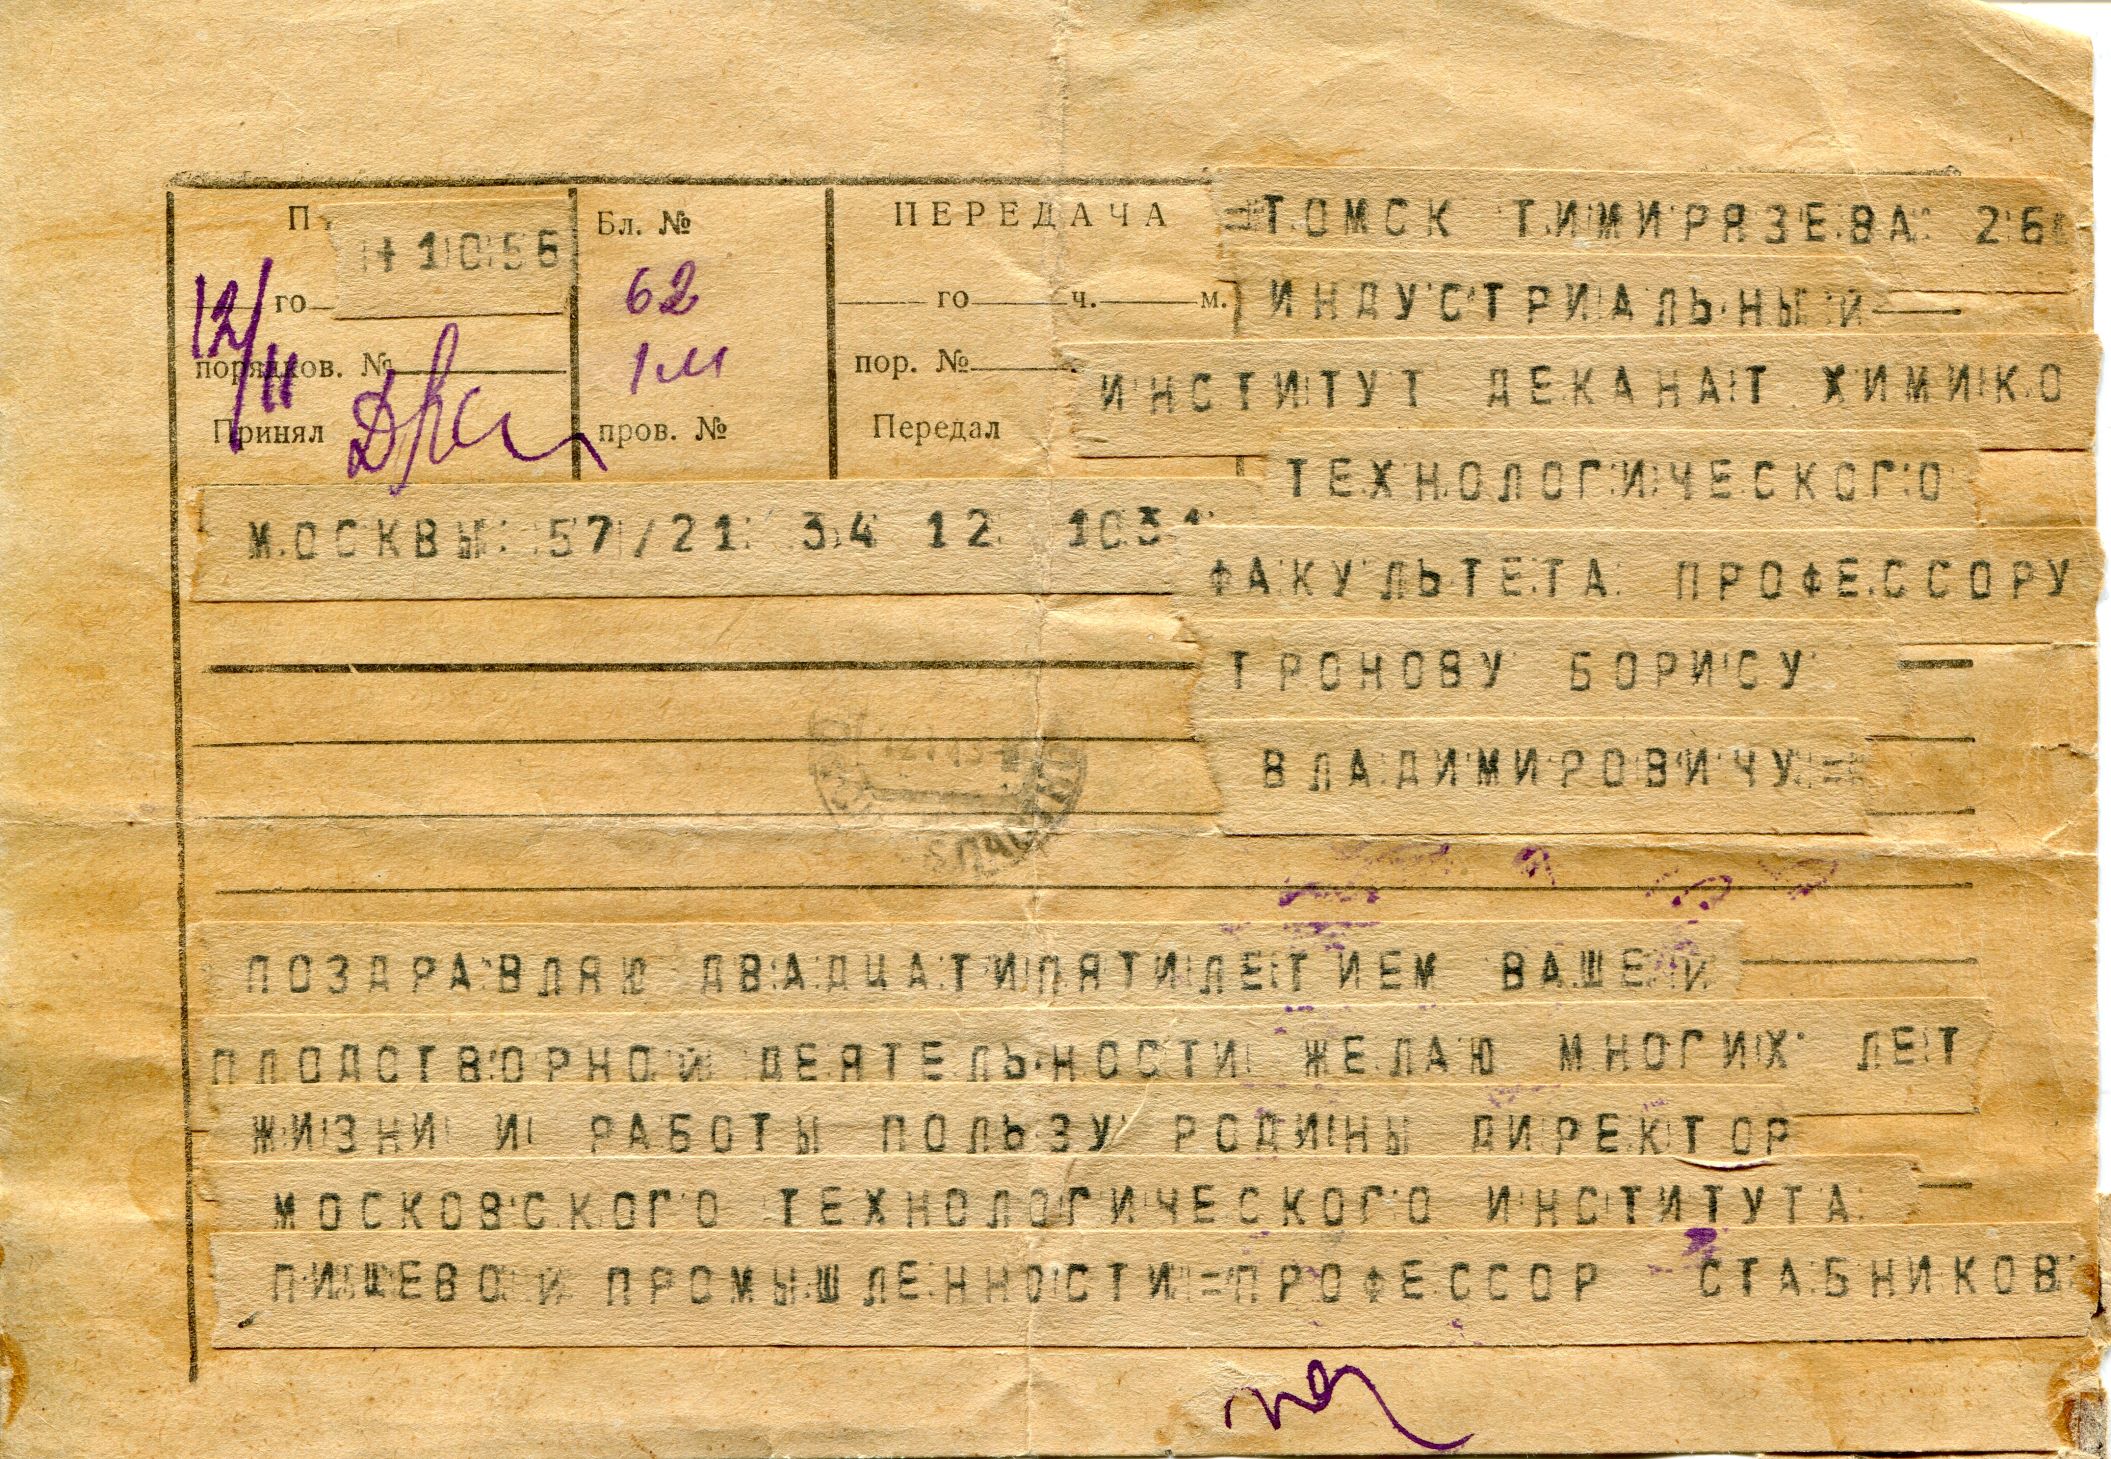 + 1056
Бл. №
ПЕРЕДАЧА
12/II го
62
го ч. м.
порядков. №
1м
пор. №
Принял
пров. №
Передал
=ТОМСК ТИМИРЯЗЕВА 26
ИНДУСТРИАЛЬНЫЙ
ИНСТИТУТ ДЕКАНАТ ХИМИКО
ТЕХНОЛОГИЧЕСКОГО
ФАКУЛЬТЕТА ПРОФЕССОРУ
ТРОНОВУ БОРИСУ
ВЛАДИМИРОВИЧУ=
МОСКВЫ 57/21 34 12 1031
ПОЗДРАВЛЯЮ ДВАДЦАТИПЯТИЛЕТИЕМ ВАШЕЙ
ПЛОДСТВОРНОЙ ДЕЯТЕЛЬНОСТИ ЖЕЛАЮ МНОГИХ ЛЕТ
ЖИЗНИ И РАБОТЫ ПОЛЬЗУ РОДИНЫ ДИРЕКТОР
МОСКОВСКОГО ТЕХНОЛОГИЧЕСКОГО ИНСТИТУТА
ПИЩЕВОЙ ПРОМЫШЛЕННОСТИ=ПРОФЕССОР СТАБНИКОВ